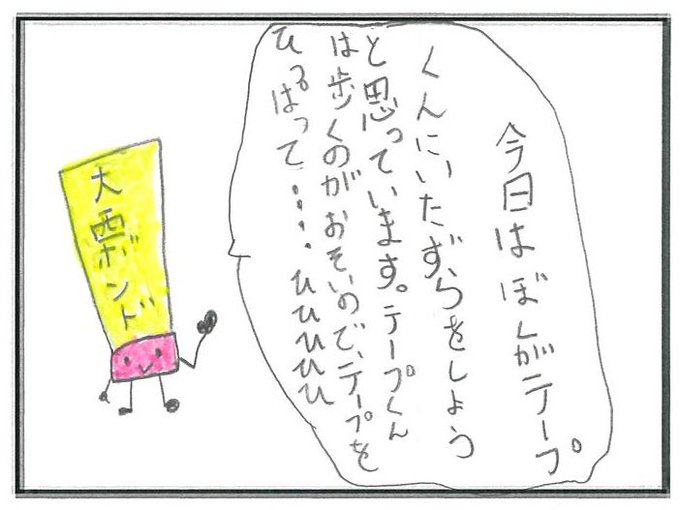 今日はぼくがテープ
くんにいたずらをしよう
と思っています。テープくん
は歩くのがおそいので、テープを
ひっぱって・・・・ひひひひひ
ボンド